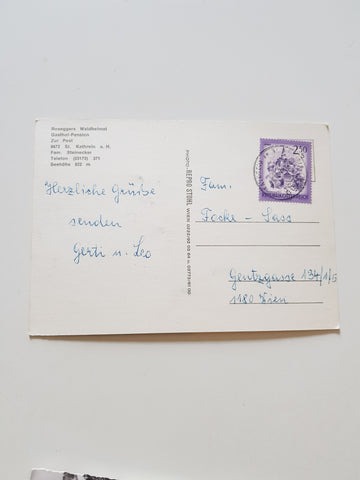 Roseggers Waldheimat
Gasthof-Pension
Zur Post
8672 St. Kathrein a. H.
Fam. Steinacker
Telefon (03173) 271
Seehöhe 822 m
Herzliche Grüße
senden
Gerti u. Leo
PHOTO-REPRO STOHL WIEN
2 50
Fam.
Focke - Sass
Gentzgasse 134/1/5
1180 Wien